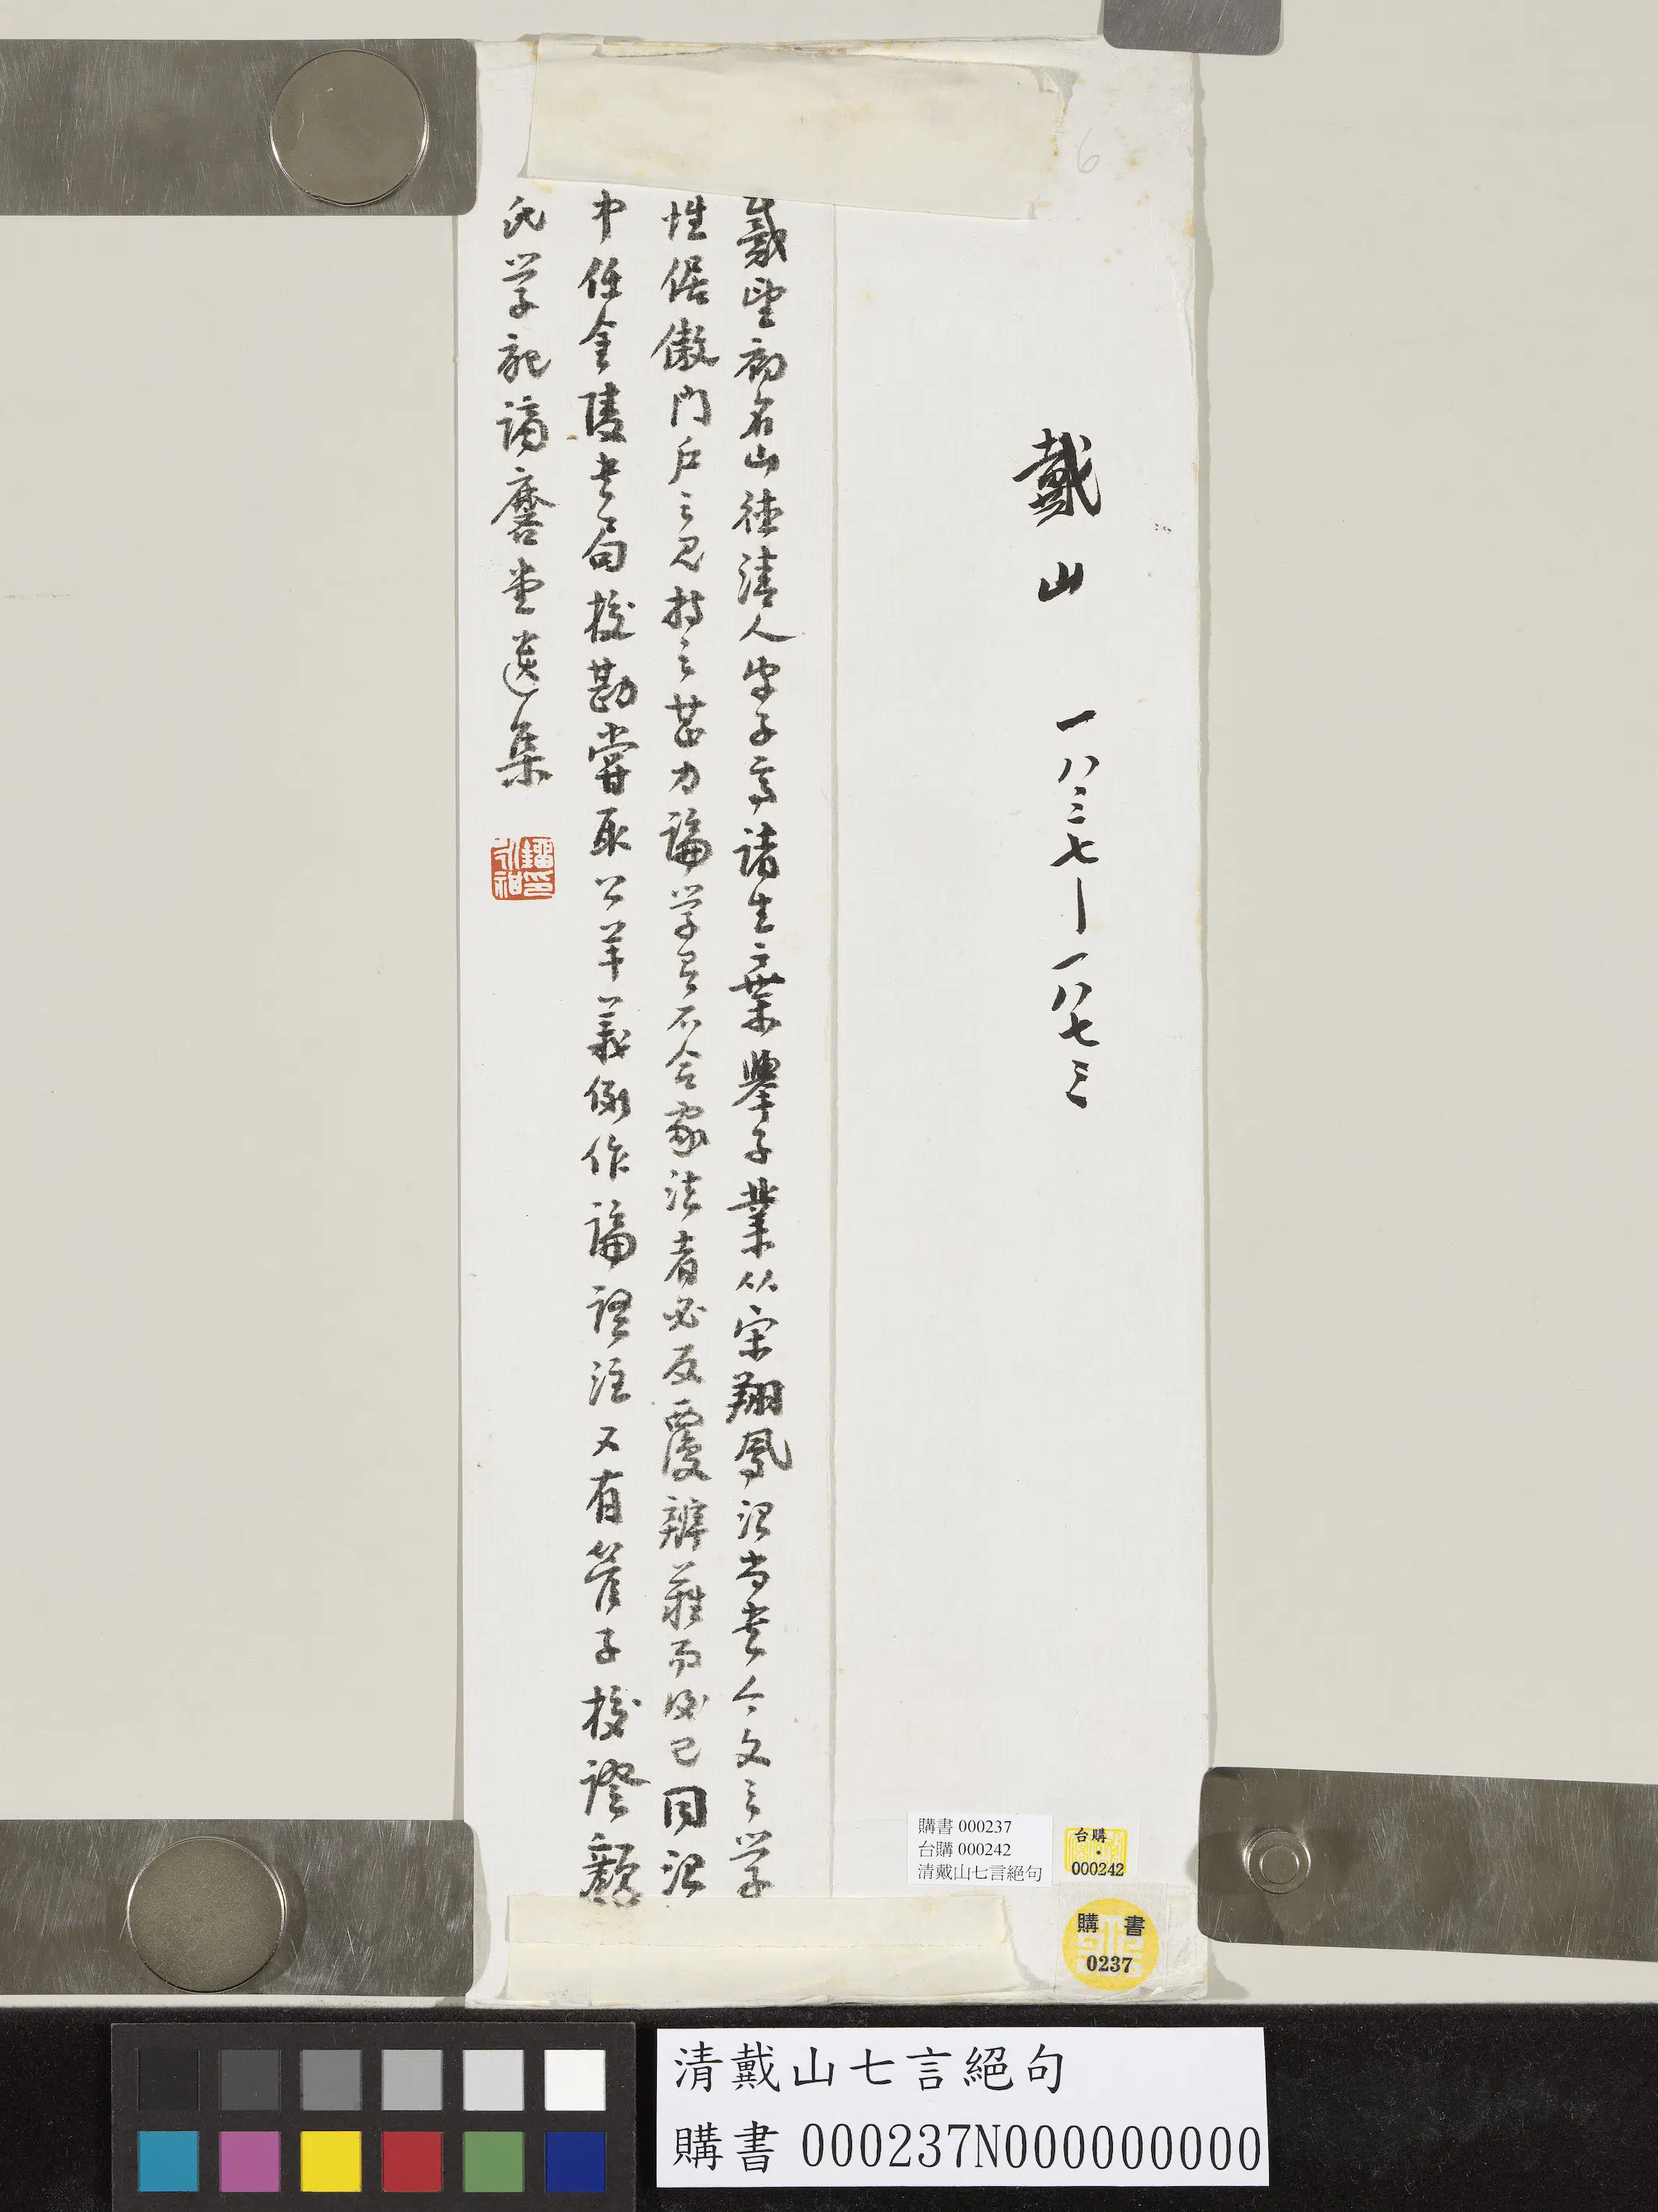 6
戴山 一八三七—一八七三
戴望初名山德清人字子高諸生棄舉子業从宋翔鳳治尚书今文之学
性倨傲門戶之見持之甚力論学有不合家法者必反覆辨難而後已同治
中任金陵书局校勘嘗取公羊義例作論語注又有管子校證顏
氏学記謫麐堂遺集
購書 000237
台購 000242
清戴山七言絕句
台購
000242
購書
0237
清戴山七言絕句
購書 000237N000000000